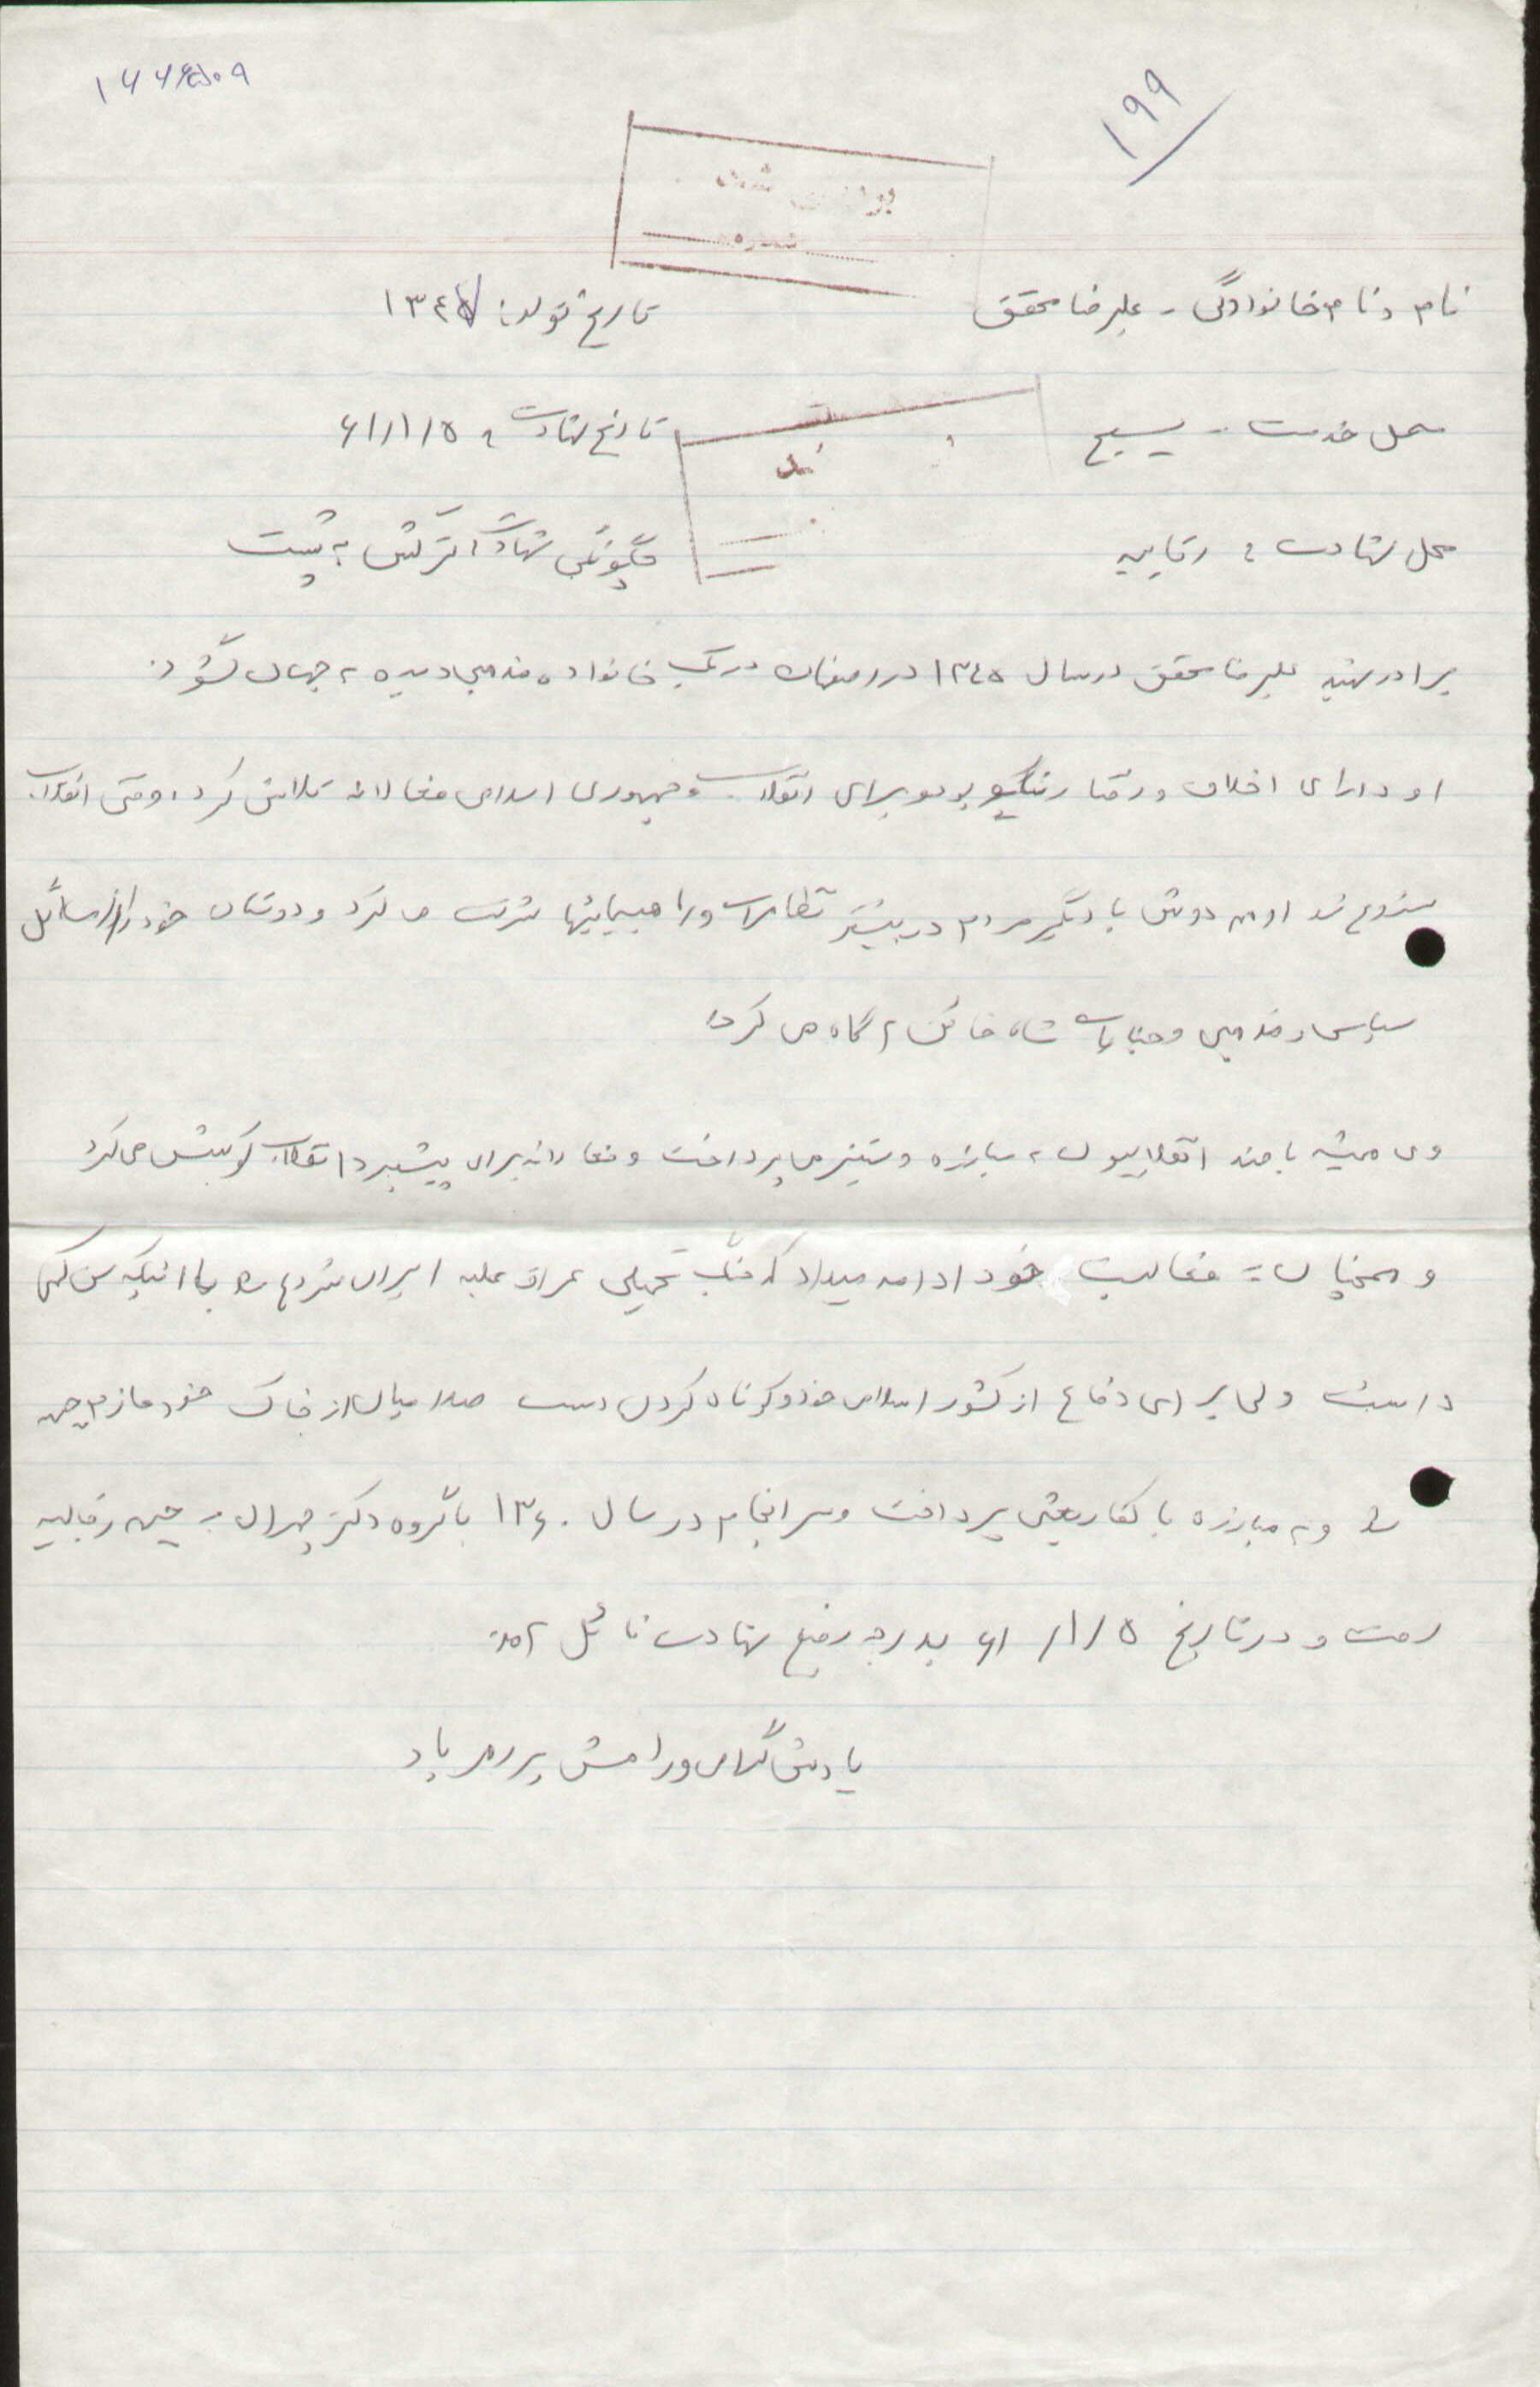 ۱۹۹
نام و نام خانوادگی - علیرضا محقق
تاریخ تولد: ۱۳۴۵
محل خدمت - بسیج
تاریخ شهادت : ۶۱/۱/۵
محل شهادت : رقابیه
چگونگی شهادت ترکش به پشت
برادر شهید علیرضا محقق در سال ۱۳۴۵ در در یک خانواده مذهبی دیده به جهان گشود.
او دارای اخلاق و رفتار نیکو بود و برای انقلاب و جمهوری اسلامی فعالانه تلاش کرد. وقتی انقلاب
شروع شد او هم دوش با دیگر مردم در بیشتر تظاهرات و راهپیمائیها شرکت می کرد و دوستان خود را از مسائل
سیاسی و مذهبی و جنایات شاه خائن آگاه می کرد.
وی همیشه با ضد انقلابیون به مبارزه و ستیز می پرداخت و فعالانه برای پیشبرد انقلاب کوشش می کرد
و همچنان به فعالیت خود ادامه میداد که جنگ تحمیلی عراق علیه ایران شروع شد با اینکه سن کمی
داشت ولی برای دفاع از کشور اسلامی خود و کوتاه کردن دست صدامیان از خاک خود عازم جبهه
شد و به مبارزه با کفار بعثی پرداخت و سرانجام در سال ۱۳۶۰ با گروه دکتر چمران به جبهه رقابیه
رفت و در تاریخ ۶۱/۱/۵ بدرجه رفیع شهادت نائل آمد.
یادش گرامی و راهش پر رهرو باد